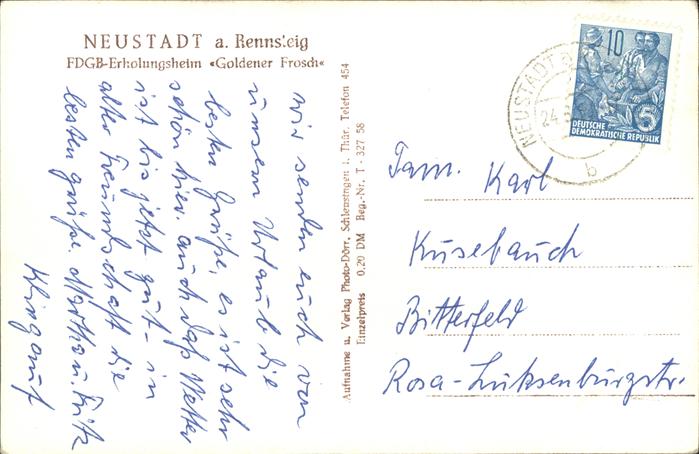 NEUSTADT a. Rennsteig
FDGB-Erholungsheim «Goldener Frosch«
wir senden euch von
unsern Urlaub die
besten Grüße, es ist sehr
schön hier auch das Wetter
ist bis jetzt gut - in
alter Freundschaft die
besten grüße. Martha u. Fritz
Klingauf
Aufnahme u. Verlag Photo-Dörr, Schleusingen i. Thür. Telefon 454
Einzelpreis 0,20 DM Reg.-Nr. T - 327 58
NEUSTADT
24
b
10
5
DEUTSCHE
DEMOKRATISCHE REPUBLIK
Fam. Karl
Kusebauch
Bitterfeld
Rosa-Luksenburgstr.